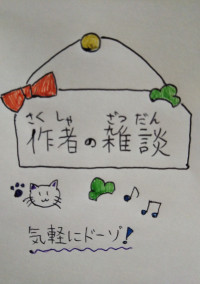 さくしゃ ざつだん
作者の雑談
気軽にドーゾ!